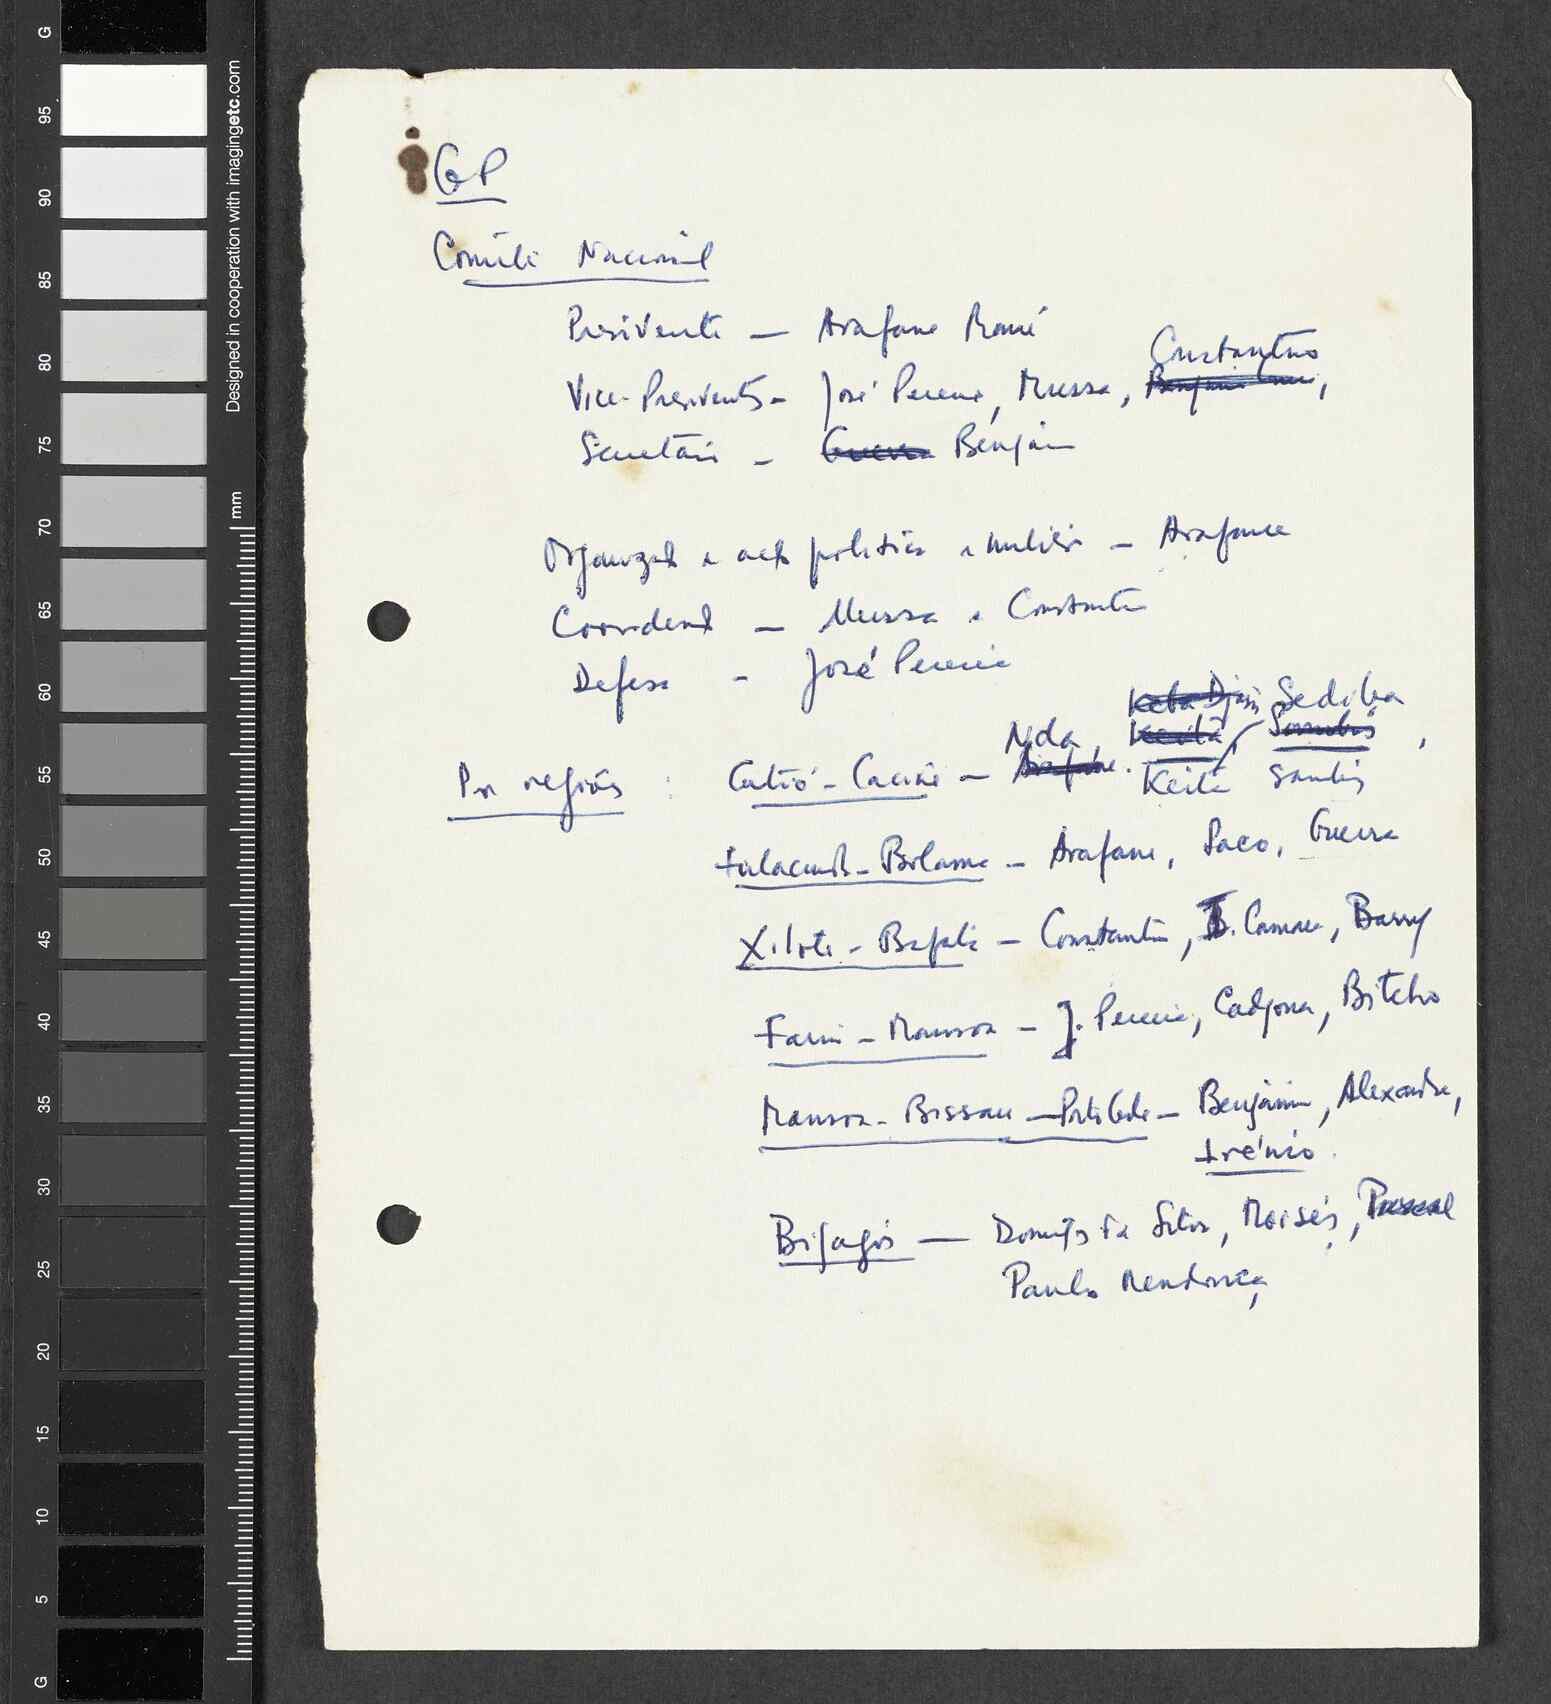 GP
Comité Nacional
Presidente — Arafane Mané
Constantino
Vice-Presidentes - José Pereira, Mussa, ,
Secretário - Guerra Benjamim
e acto política e militar - Arafane
Coordenad — Mussa e Constantino
Defesa - José Pereira
Keita Djassi Sediba
Nda, Keitá, Sambús ,
Por regiões : Catió - Caciné - Arafane.
Keita Sambú
Fulacunda - Bolama - Arafane, Paco, Guerra
Xitole - Bafatá - Constantino, B. Camara, Barry
Farim - Mansoa - J. Pereira, Cadjona, Bitcho
Mansoa - Bissau - - Benjamim, Alexandre,
Irénio.
Bijagós — Domingos da Silva, Moisés, Pascoal
Paulo Mendonça,
G
95
90
85
80
75
70
65
60
55
50
45
40
35
30
25
20
15
10
5
G
Designed in cooperation with imagingetc.com
mm